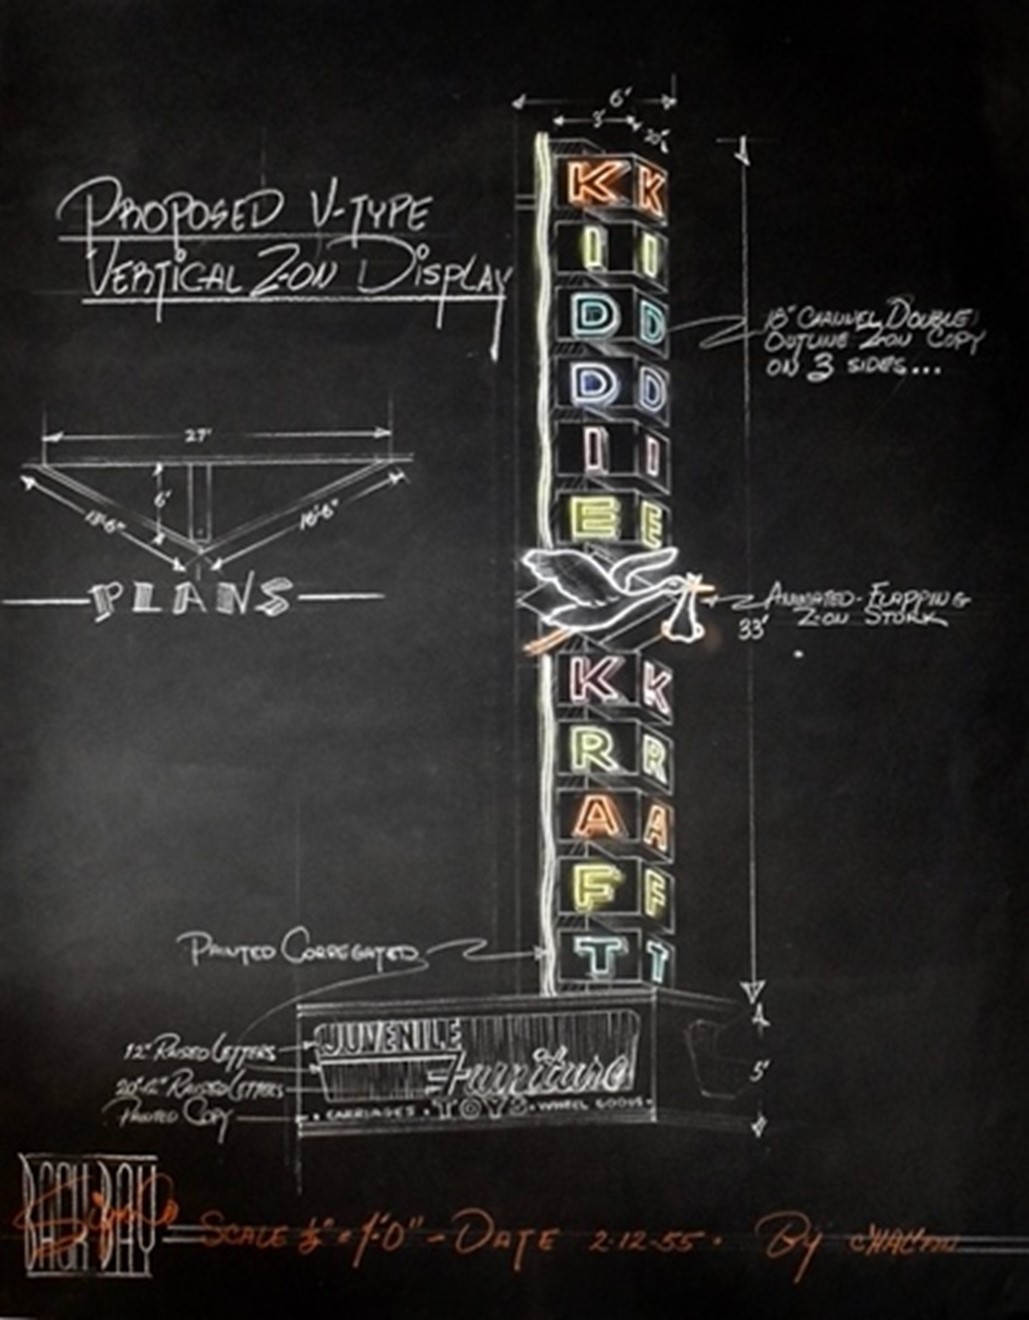 6'
3'
PROPOSED V-TYPE
VERTICAL Z-ON DISPLAY
KIDDIE
KIDDIE
18" CHANNEL DOUBLE
OUTLINE Z-ON COPY
ON 3 SIDES...
27'
6'
PLANS
ANIMATED-FLAPPING
Z-ON STORK
33'
KRAFT
KRAFT
PAINTED CORREGATED
JUVENILE
Furniture
TOYS
• CARRIAGES • • WHEEL GOODS •
12" RAISED LETTERS
RAISED LETTERS
PAINTED COPY
5'
BACK BAY
Sign Co
SCALE ½" = 1'-0" - DATE 2-12-55 • BY